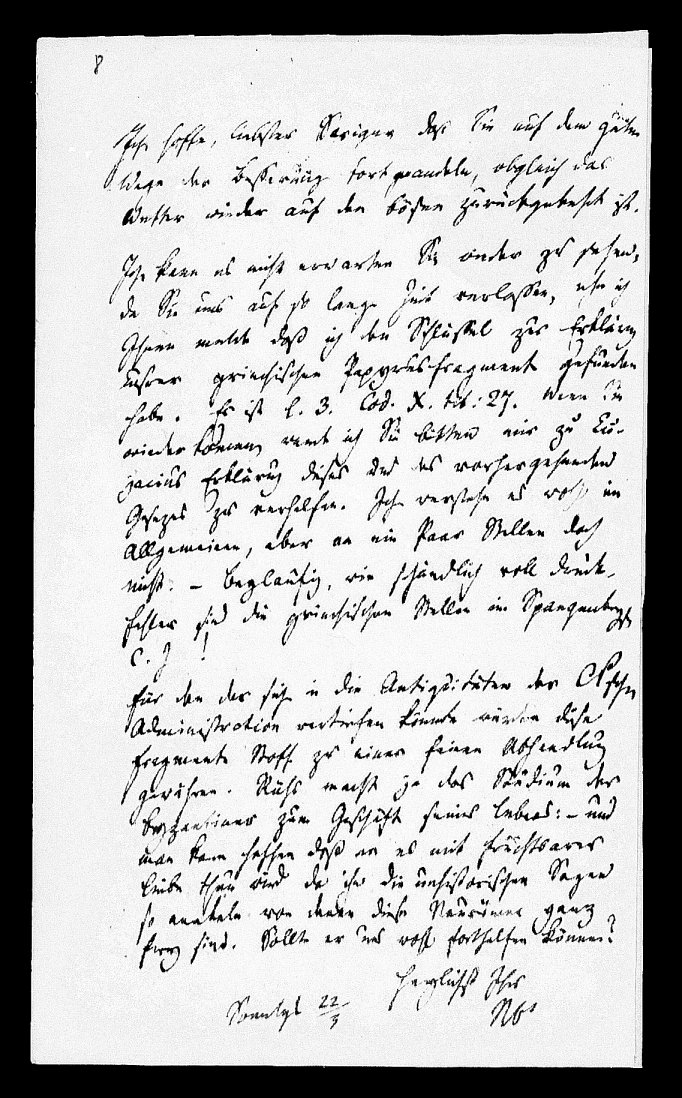 8
Ich hoffe, liebster Savigny daß Sie auf dem guten
Wege der Besserung fortwandeln, obgleich das
Wetter wieder auf den bösen zurückgekehrt ist.
Ich kann es nicht erwarten Sie wieder zu sehen,
da Sie uns auf so lange Zeit verlassen, ehe ich
Ihnen melde daß ich den Schlüssel zur Erklärung
unsrer griechischen Papyrusfragmente gefunden
habe. Es ist l. 3. Cod. X. tit: 27. Wenn Sie
wieder kommen werde ich Sie bitten mir zu Cu-
jacius Erklärung dieses und des vorhergehenden
Gesezes zu verhelfen. Ich verstehe es wohl im
Allgemeinen, aber an ein Paar Stellen doch
nicht. – Beyläufig, wie schändlich voll Druck-
fehler sind die griechischen Stellen im Spangenberg
C. J !
Für den der sich in die Antiquitäten der
Administration vertiefen könnte würden diese
Fragmente Stoff zu einer feinen Abhandlung
gewähren. Rühs macht ja das Studium der
Byzantiner zum Geschäft seines Lebens: – und
man kann hoffen daß er es mit fruchtbarer
Liebe thun wird da ihn die unhistorischen Sagen
so aneckeln von denen diese ganz
frey sind. Sollte er uns wohl forthelfen können?
Herzlichst Ihr
Sonntags 22/3
Nbr